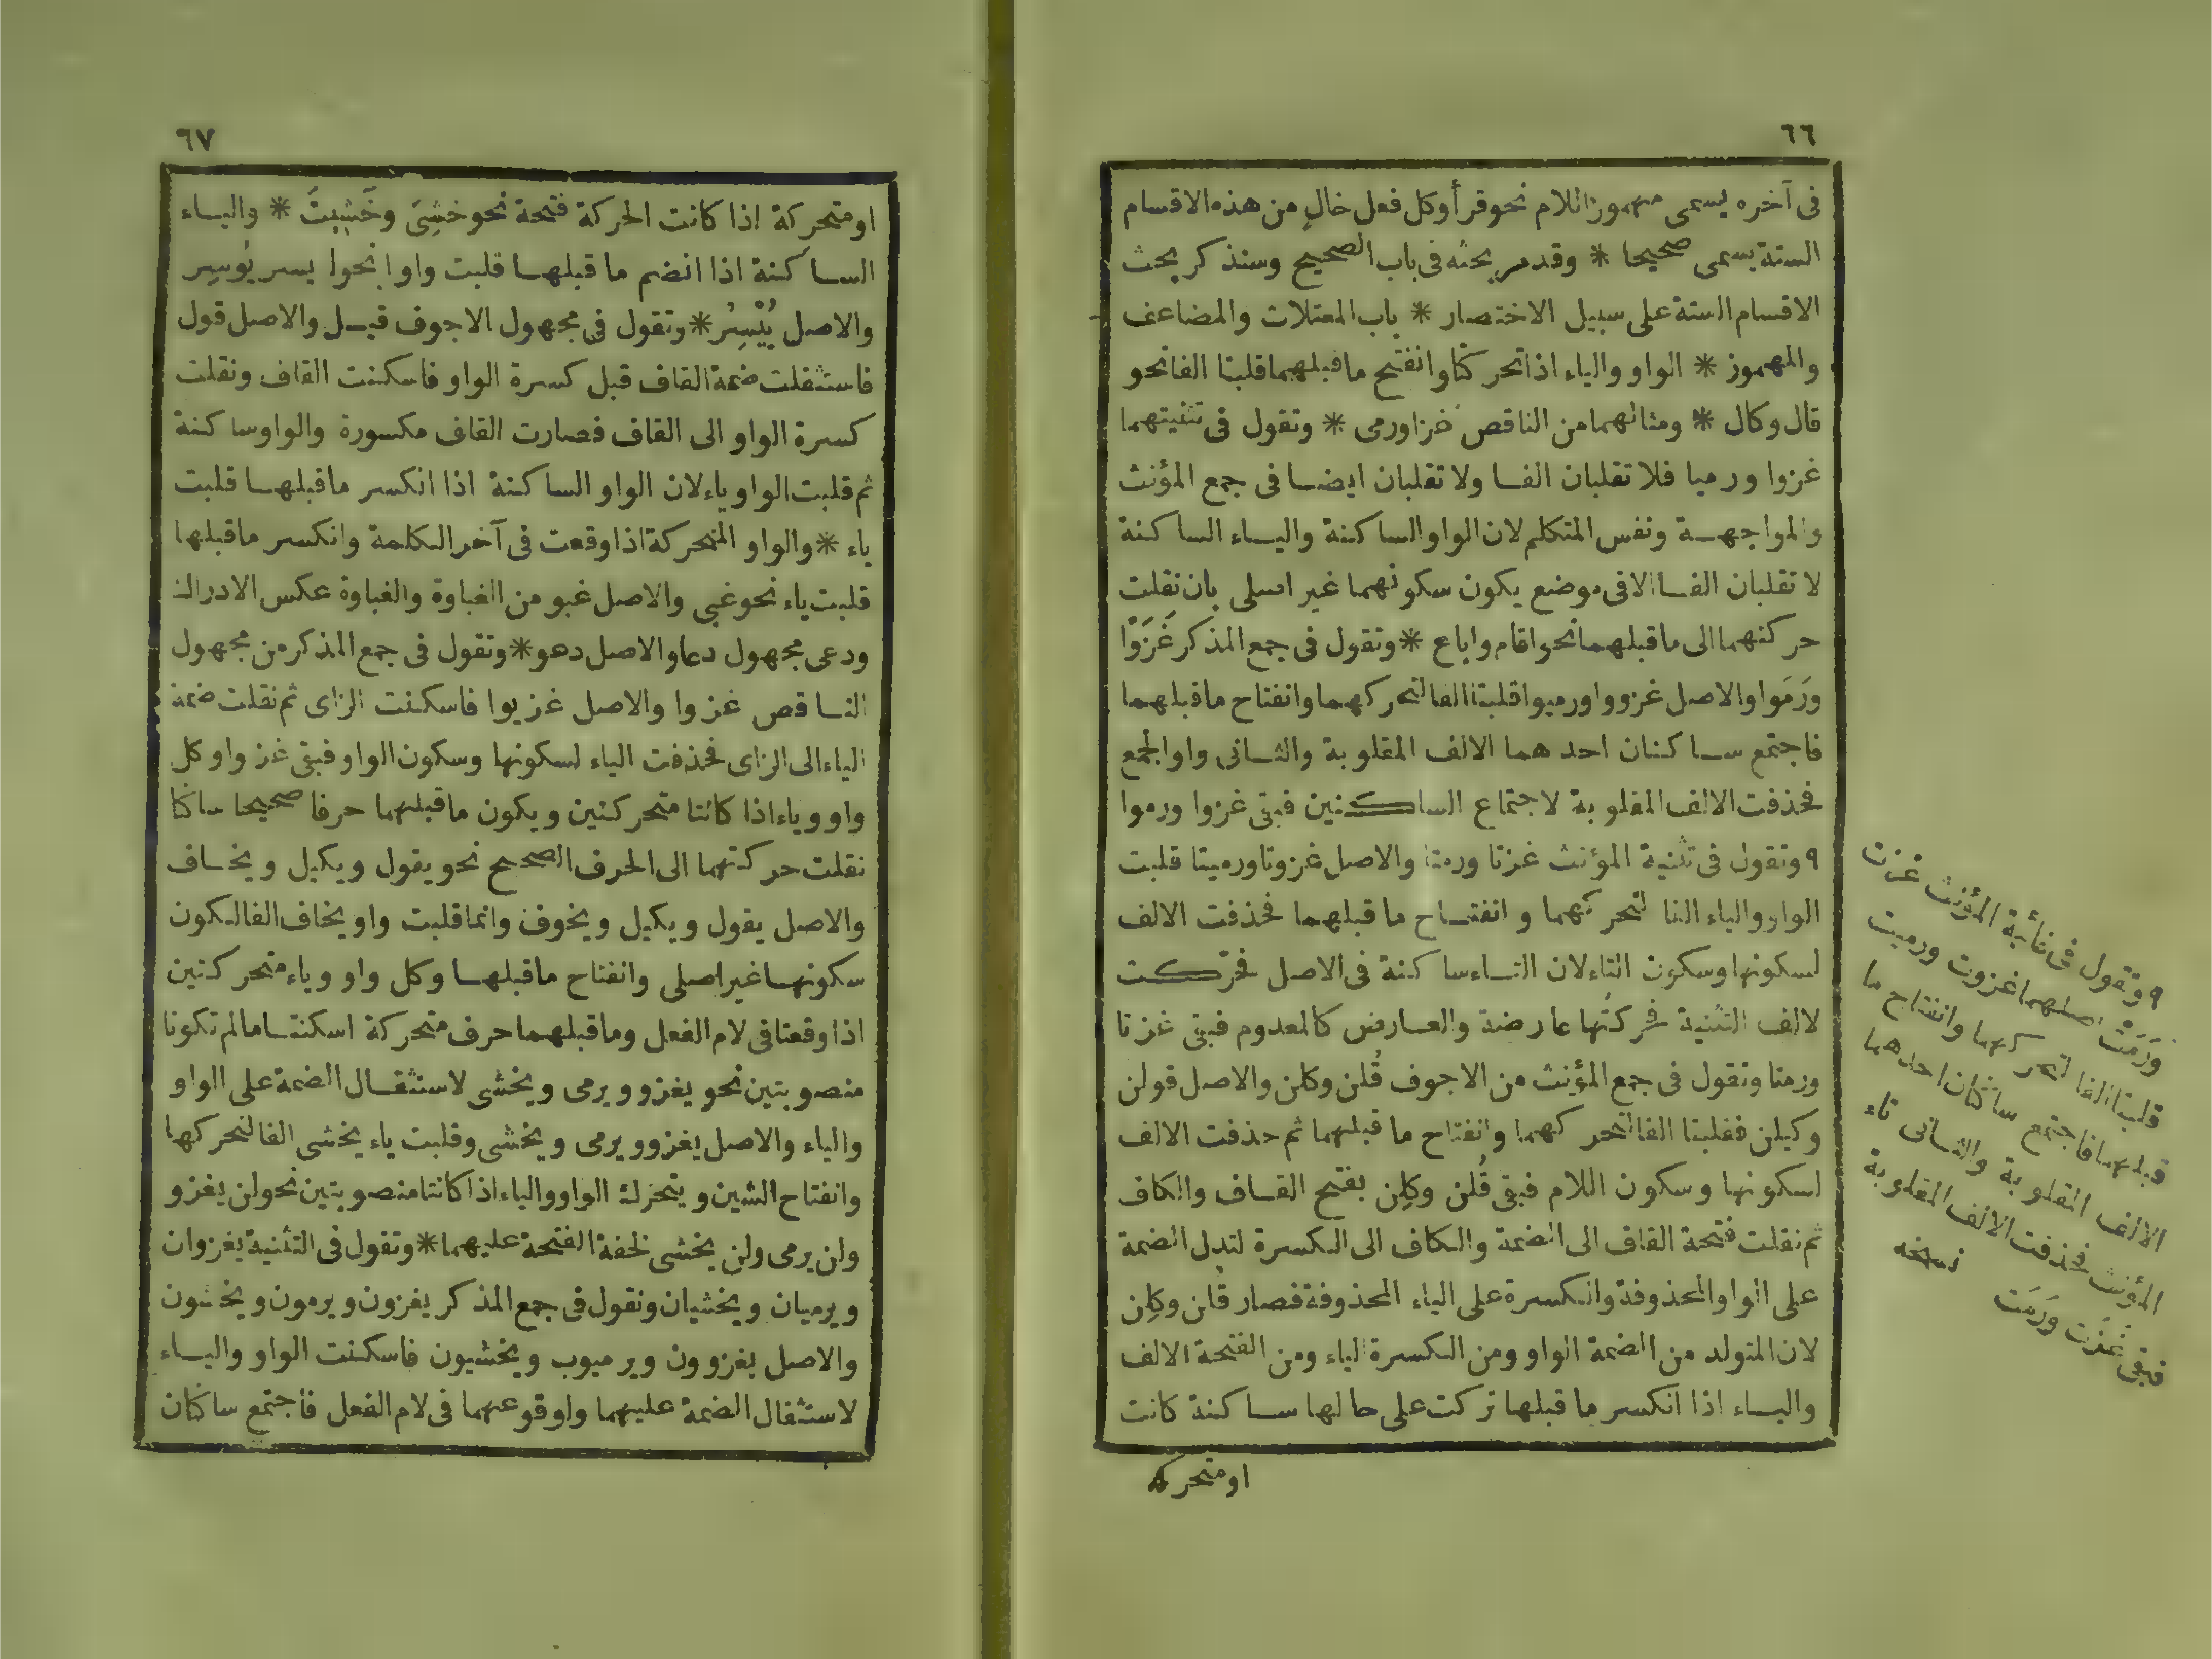 ٦٦
فى آخره يسمى مهموز اللام نحو قرأ وكل فعل خالٍ من هذه الاقسام
الستة يسمى صحيحا * وقد مر بحثه فى باب الصحيح وسنذكر بحث
الاقسام الستة على سبيل الاختصار * باب المعتلات والمضاعف
والمهموز * الواو والياء اذا تحركتا وانفتح ما قبلهما قلبتا الفا نحو
قال وكال * ومثالهما من الناقص غزا ورمى * وتقول فى تثنيتهما
غزوا ورميا فلا تقلبان الفا ولا تقلبان ايضا فى جمع المؤنث
والمواجهة ونفس المتكلم لان الواو الساكنة والياء الساكنة
لا تقلبان الفا الا فى موضع يكون سكونهما غير اصلى بان نقلت
حركتهما الى ما قبلهما نحو اقام واباع * وتقول فى جمع المذكر غَزَوْا
ورَمَوا والاصل غزووا ورميوا قلبتا الفا لتحركهما وانفتاح ما قبلهما
فاجتمع ساكنان احدهما الالف المقلوبة والثانى واو الجمع
فحذفت الالف المقلوبة لاجتماع الساكنين فبقى غزوا ورموا
٩ وتقول فى تثنية المؤنث غزتا ورمتا والاصل غزوتا ورميتا قلبت
الواو والياء الفا لتحركهما وانفتاح ما قبلهما فحذفت الالف
لسكونها وسكون التاء لان التاء ساكنة فى الاصل فحرّكت
لالف التثنية فحركتها عارضة والعارض كالمعدوم فبقى غزتا
ورمتا وتقول فى جمع المؤنث من الاجوف قُلن وكلن والاصل قولن
وكيلن فقلبتا الفا لتحركهما وانفتاح ما قبلهما ثم حذفت الالف
لسكونها وسكون اللام فبقى قُلن وكِلن بفتح القاف والكاف
ثم نقلت فتحة القاف الى الضمة والكاف الى الكسرة لتدل الضمة
على الواو المحذوفة والكسرة على الياء المحذوفة فصار قُلن وكِلن
لان المتولد من الضمة الواو ومن الكسرة الياء ومن الفتحة الالف
والياء اذا انكسر ما قبلها تركت على حالها ساكنة كانت
او متحركة
٩ وتقول فى غائبة المؤنث غزت
ورَمَتْ اصلهما غزوت ورميت
قلبتا الفا لتحركهما وانفتاح ما
قبلهما فاجتمع ساكنان احدهما
الالف المقلوبة والثانى تاء
المؤنث فحذفت الالف المقلوبة
فبقى غَزَت ورَمَت
نسخه
٦٧
او متحركة اذا كانت الحركة فتحة نحو خشِىَ وخَشِيتَ * والياء
الساكنة اذا انضم ما قبلها قلبت واوا نحوا يسر يُوسِر
والاصل يُيْسِرُ * وتقول فى مجهول الاجوف قيل والاصل قول
فاستثقلت ضمة القاف قبل كسرة الواو فاسكنت القاف ونقلت
كسرة الواو الى القاف فصارت القاف مكسورة والواو ساكنة
ثم قلبت الواو ياء لان الواو الساكنة اذا انكسر ما قبلها قلبت
ياء * والواو المتحركة اذا وقعت فى آخر الكلمة وانكسر ما قبلها
قلبت ياء نحو غبى والاصل غبو من الغباوة والغباوة عكس الادراك
ودعى مجهول دعا والاصل دعو * وتقول فى جمع المذكر من مجهول
الناقص غزوا والاصل غزيوا فاسكنت الزاى ثم نقلت ضمة
الياء الى الزاى فحذفت الياء لسكونها وسكون الواو فبقى غزوا وكل
واو وياء اذا كانتا متحركتين ويكون ما قبلهما حرفا صحيحا ساكنا
نقلت حركتهما الى الحرف الصحيح نحو يقول ويكيل ويخاف
والاصل يقول ويكيل ويخوف وانما قلبت واو يخاف الفا لكون
سكونها غير اصلى وانفتاح ما قبلها وكل واو وياء متحركتين
اذا وقعتا فى لام الفعل وما قبلهما حرف متحركة اسكنتا ما لم تكونا
منصوبتين نحو يغزو ويرمى ويخشى لاستثقال الضمة على الواو
والياء والاصل يغزو ويرمى ويخشى وقلبت ياء يخشى الفا لتحركها
وانفتاح الشين ويتحرك الواو والياء اذا كانتا منصوبتين نحو لن يغزو
ولن يرمى ولن يخشى لخفة الفتحة عليهما * وتقول فى التثنية يغزوان
ويرميان ويخشيان وتقول فى جمع المذكر يغزون ويرمون ويخشون
والاصل يغزوون ويرميون ويخشيون فاسكنت الواو والياء
لاستثقال الضمة عليهما ولوقوعهما فى لام الفعل فاجتمع ساكنان